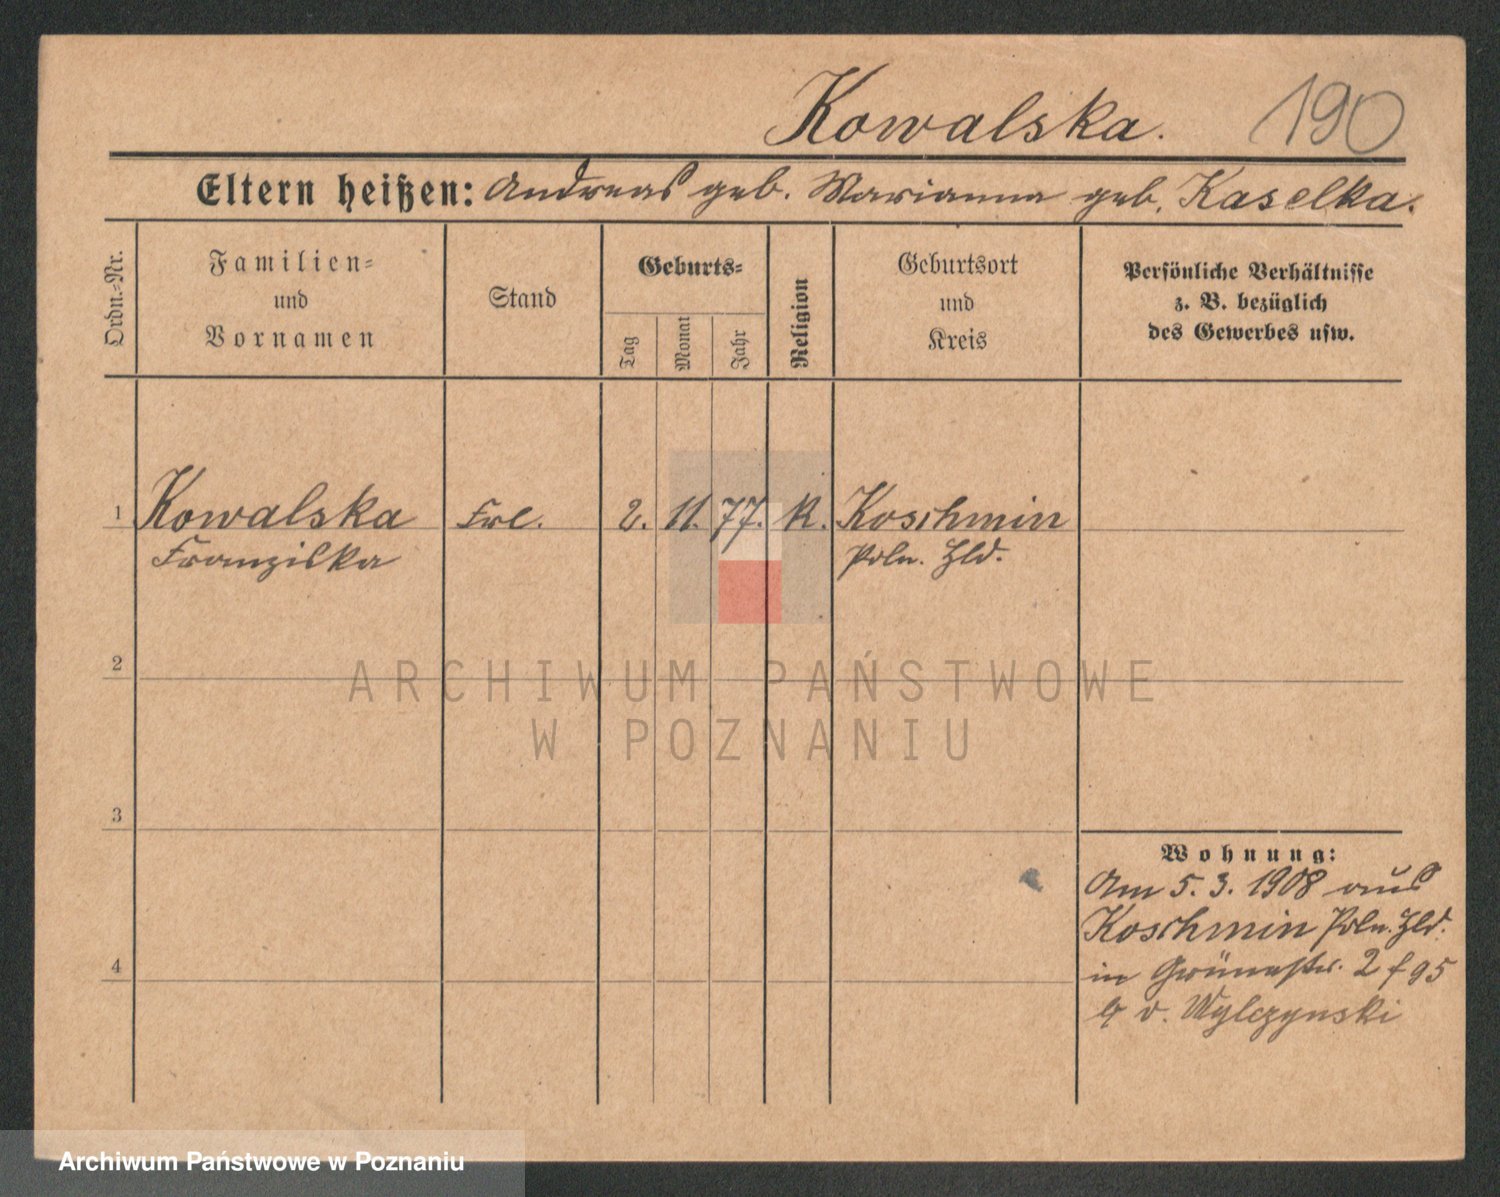 Kowalska. 190
Eltern heißen: Andreas geb. Marianna geb. Kaselka.
Ordn.-Nr.
Familien-
und
Vornamen
Stand
Geburts-
Tag
Monat
Jahr
Religion
Geburtsort
und
Kreis
Persönliche Verhältnisse
z. B. bezüglich
des Gewerbes usw.
1 Kowalska Frl. 2. 11. 77. k. Koschmin
Franziska Poln.
2
ARCHIWUM PAŃSTWOWE
W POZNANIU
3
Wohnung:
Am 5. 3. 1908 aus
Koschmin Poln.
4
in Grünestr. 2 95
v. Wylczynski
Archiwum Państwowe w Poznaniu